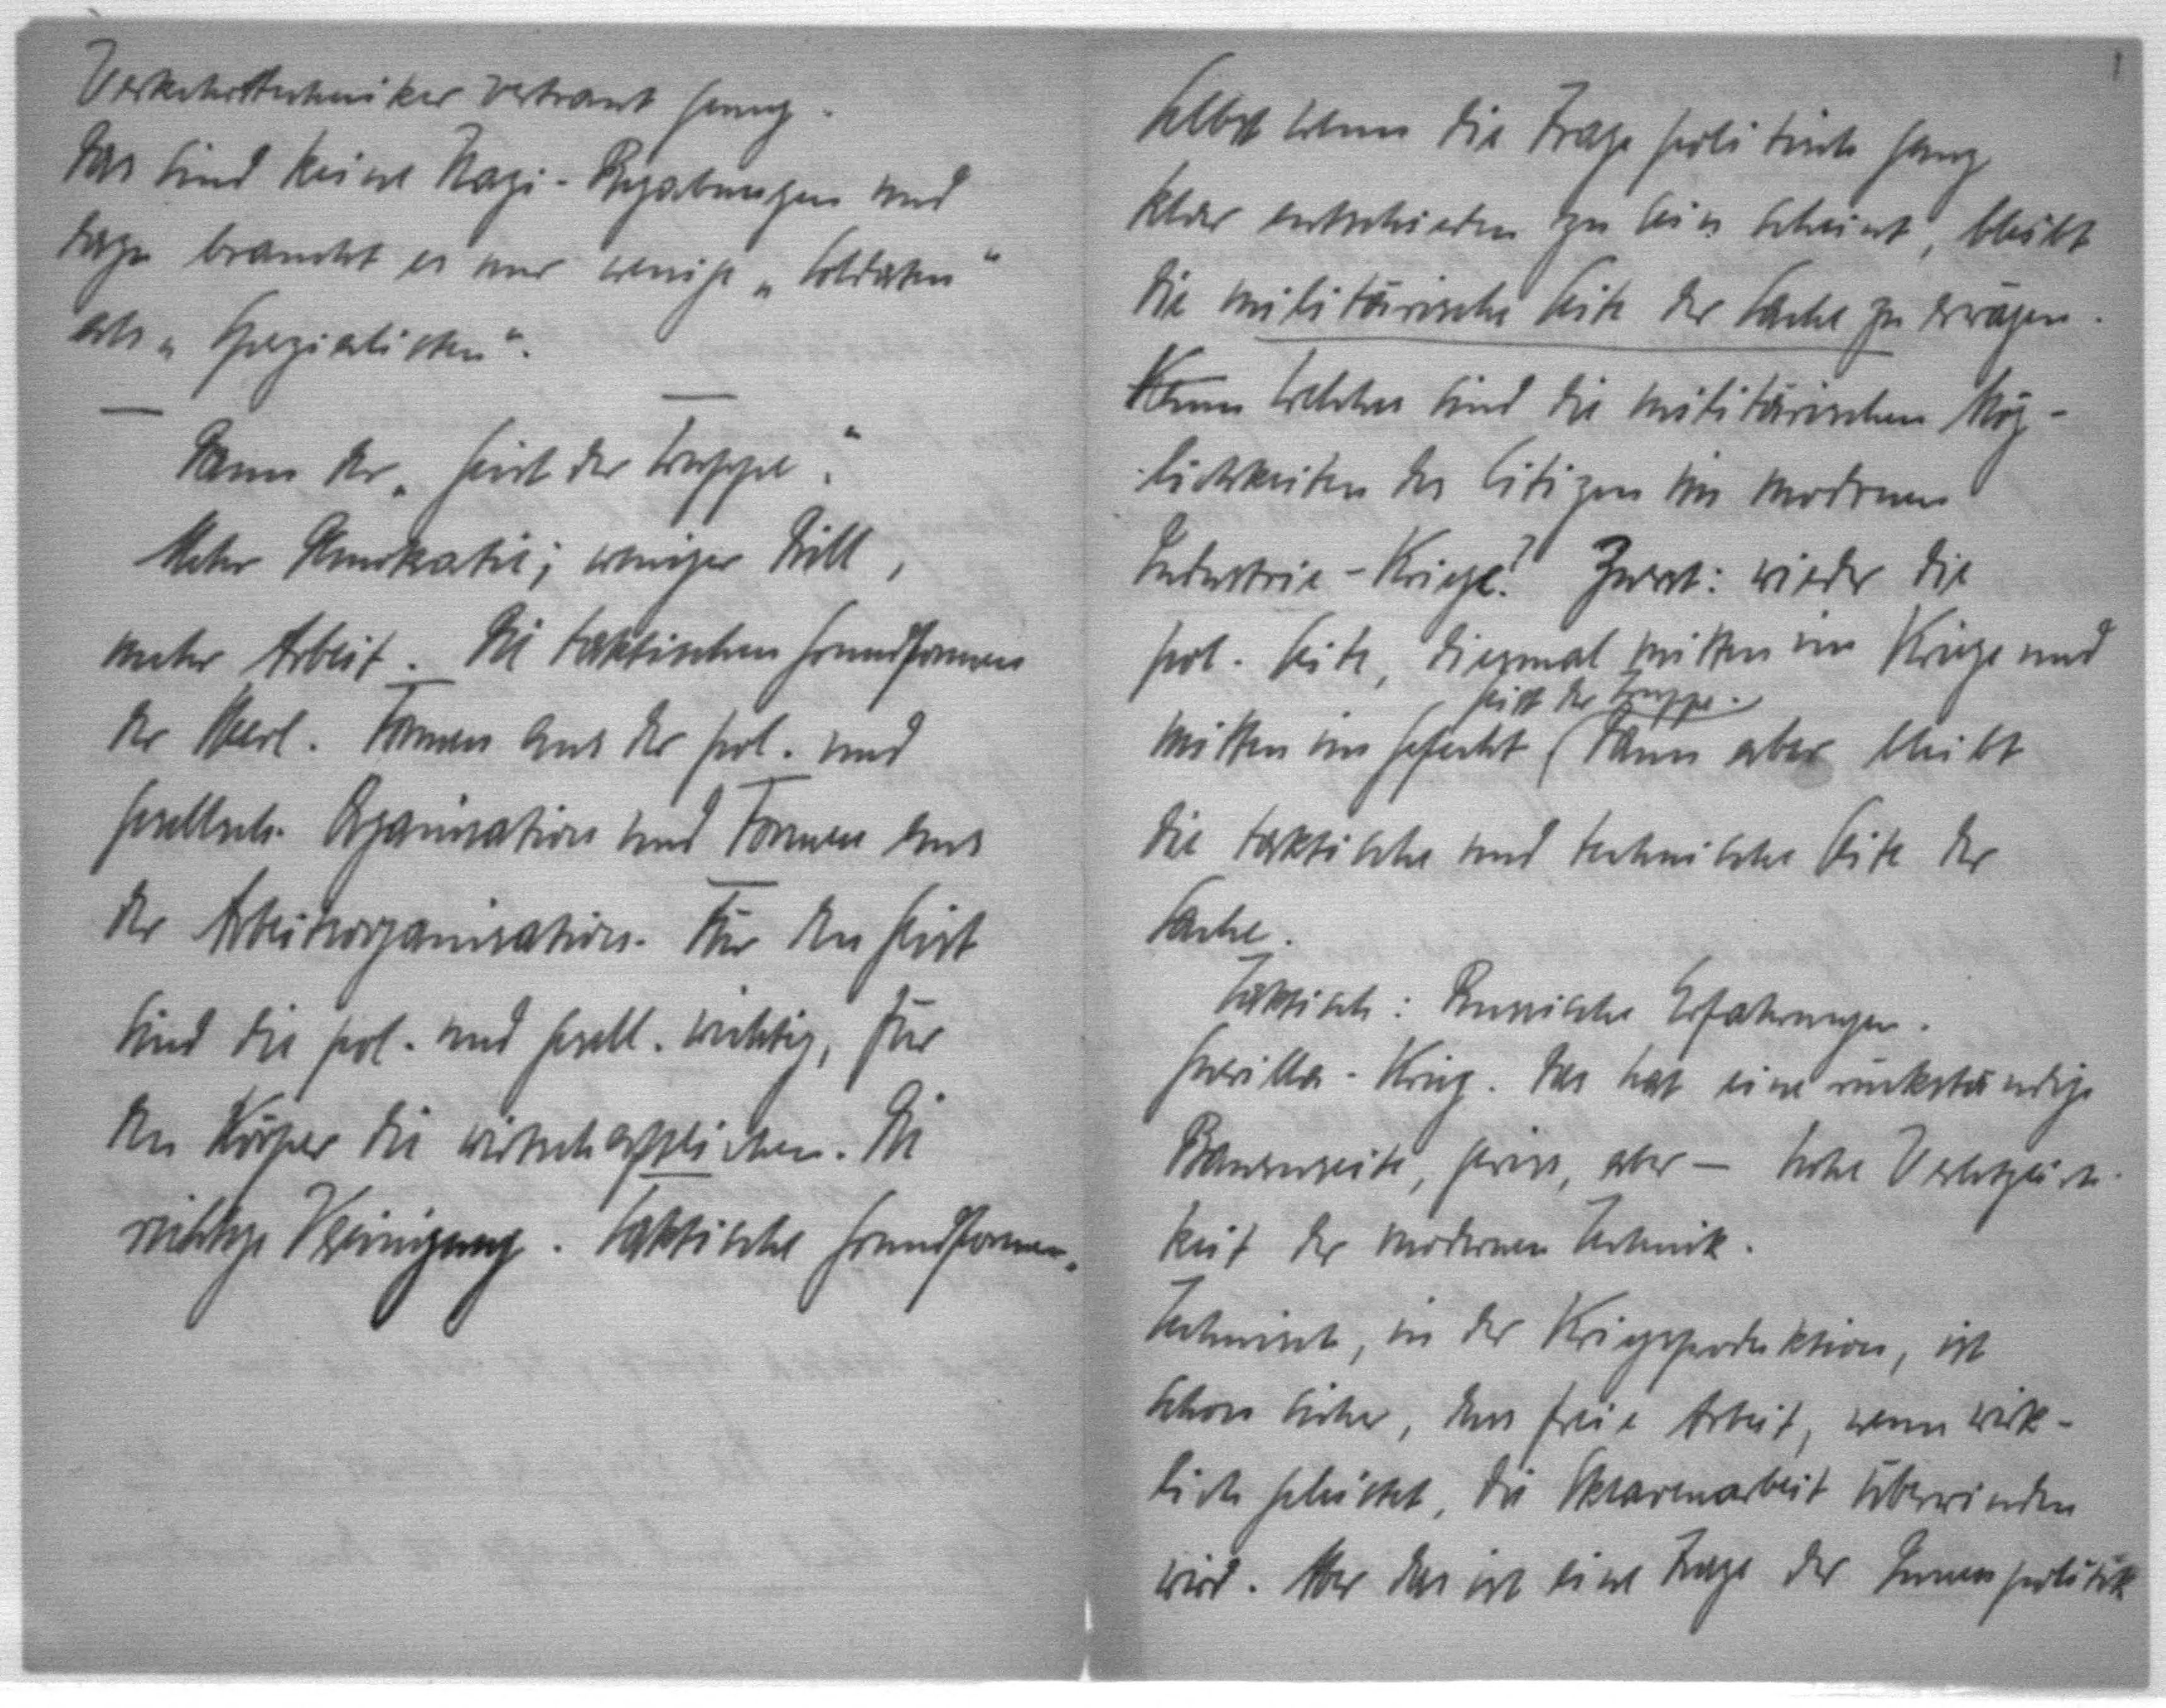 Verkehrstechniker vertraut genug.
Das sind keine Nazi-Begabungen und
dazu braucht es nur wenige „Soldaten"
als „Spezialisten".
Dann der „Geist der Truppe".
Mehr Demokratie; weniger Drill,
mehr Arbeit. Die taktischen Grundformen
der Formen aus der pol. und
gesellsch. Organisation und Formen aus
der Arbeitsorganisation. Für den Geist
sind die pol. und gesell. wichtig, für
den Körper die wirtschaftlichen. Die
richtige Vereinigung. taktische Grundformen.
Selbst wenn die Frage politisch ganz
klar entschieden zu sein scheint, bleibt
die militärische Seite der Sache zu erwägen.
Welches sind die militärischen Mög-
lichkeiten des Citizen im modernen
Industrie-Kriege? Zuerst: wieder die
pol. Seite, diesmal mitten im Kriege und
Geist der Truppe.
mitten im Gefecht (Dann aber bleibt
die taktische und technische Seite der
Sache.
Taktisch: Russische Erfahrungen.
Guerilla-Krieg. Das hat eine rückständige
Bauernseite, gewiss, aber — hohe Verletzlich-
keit der modernen Technik.
Technisch, in der Kriegsproduktion, ist
schon sicher, dass freie Arbeit, wenn wirk-
lich geleistet, die Sklavenarbeit überwinden
wird. Aber das ist eine Frage der Innenpolitik